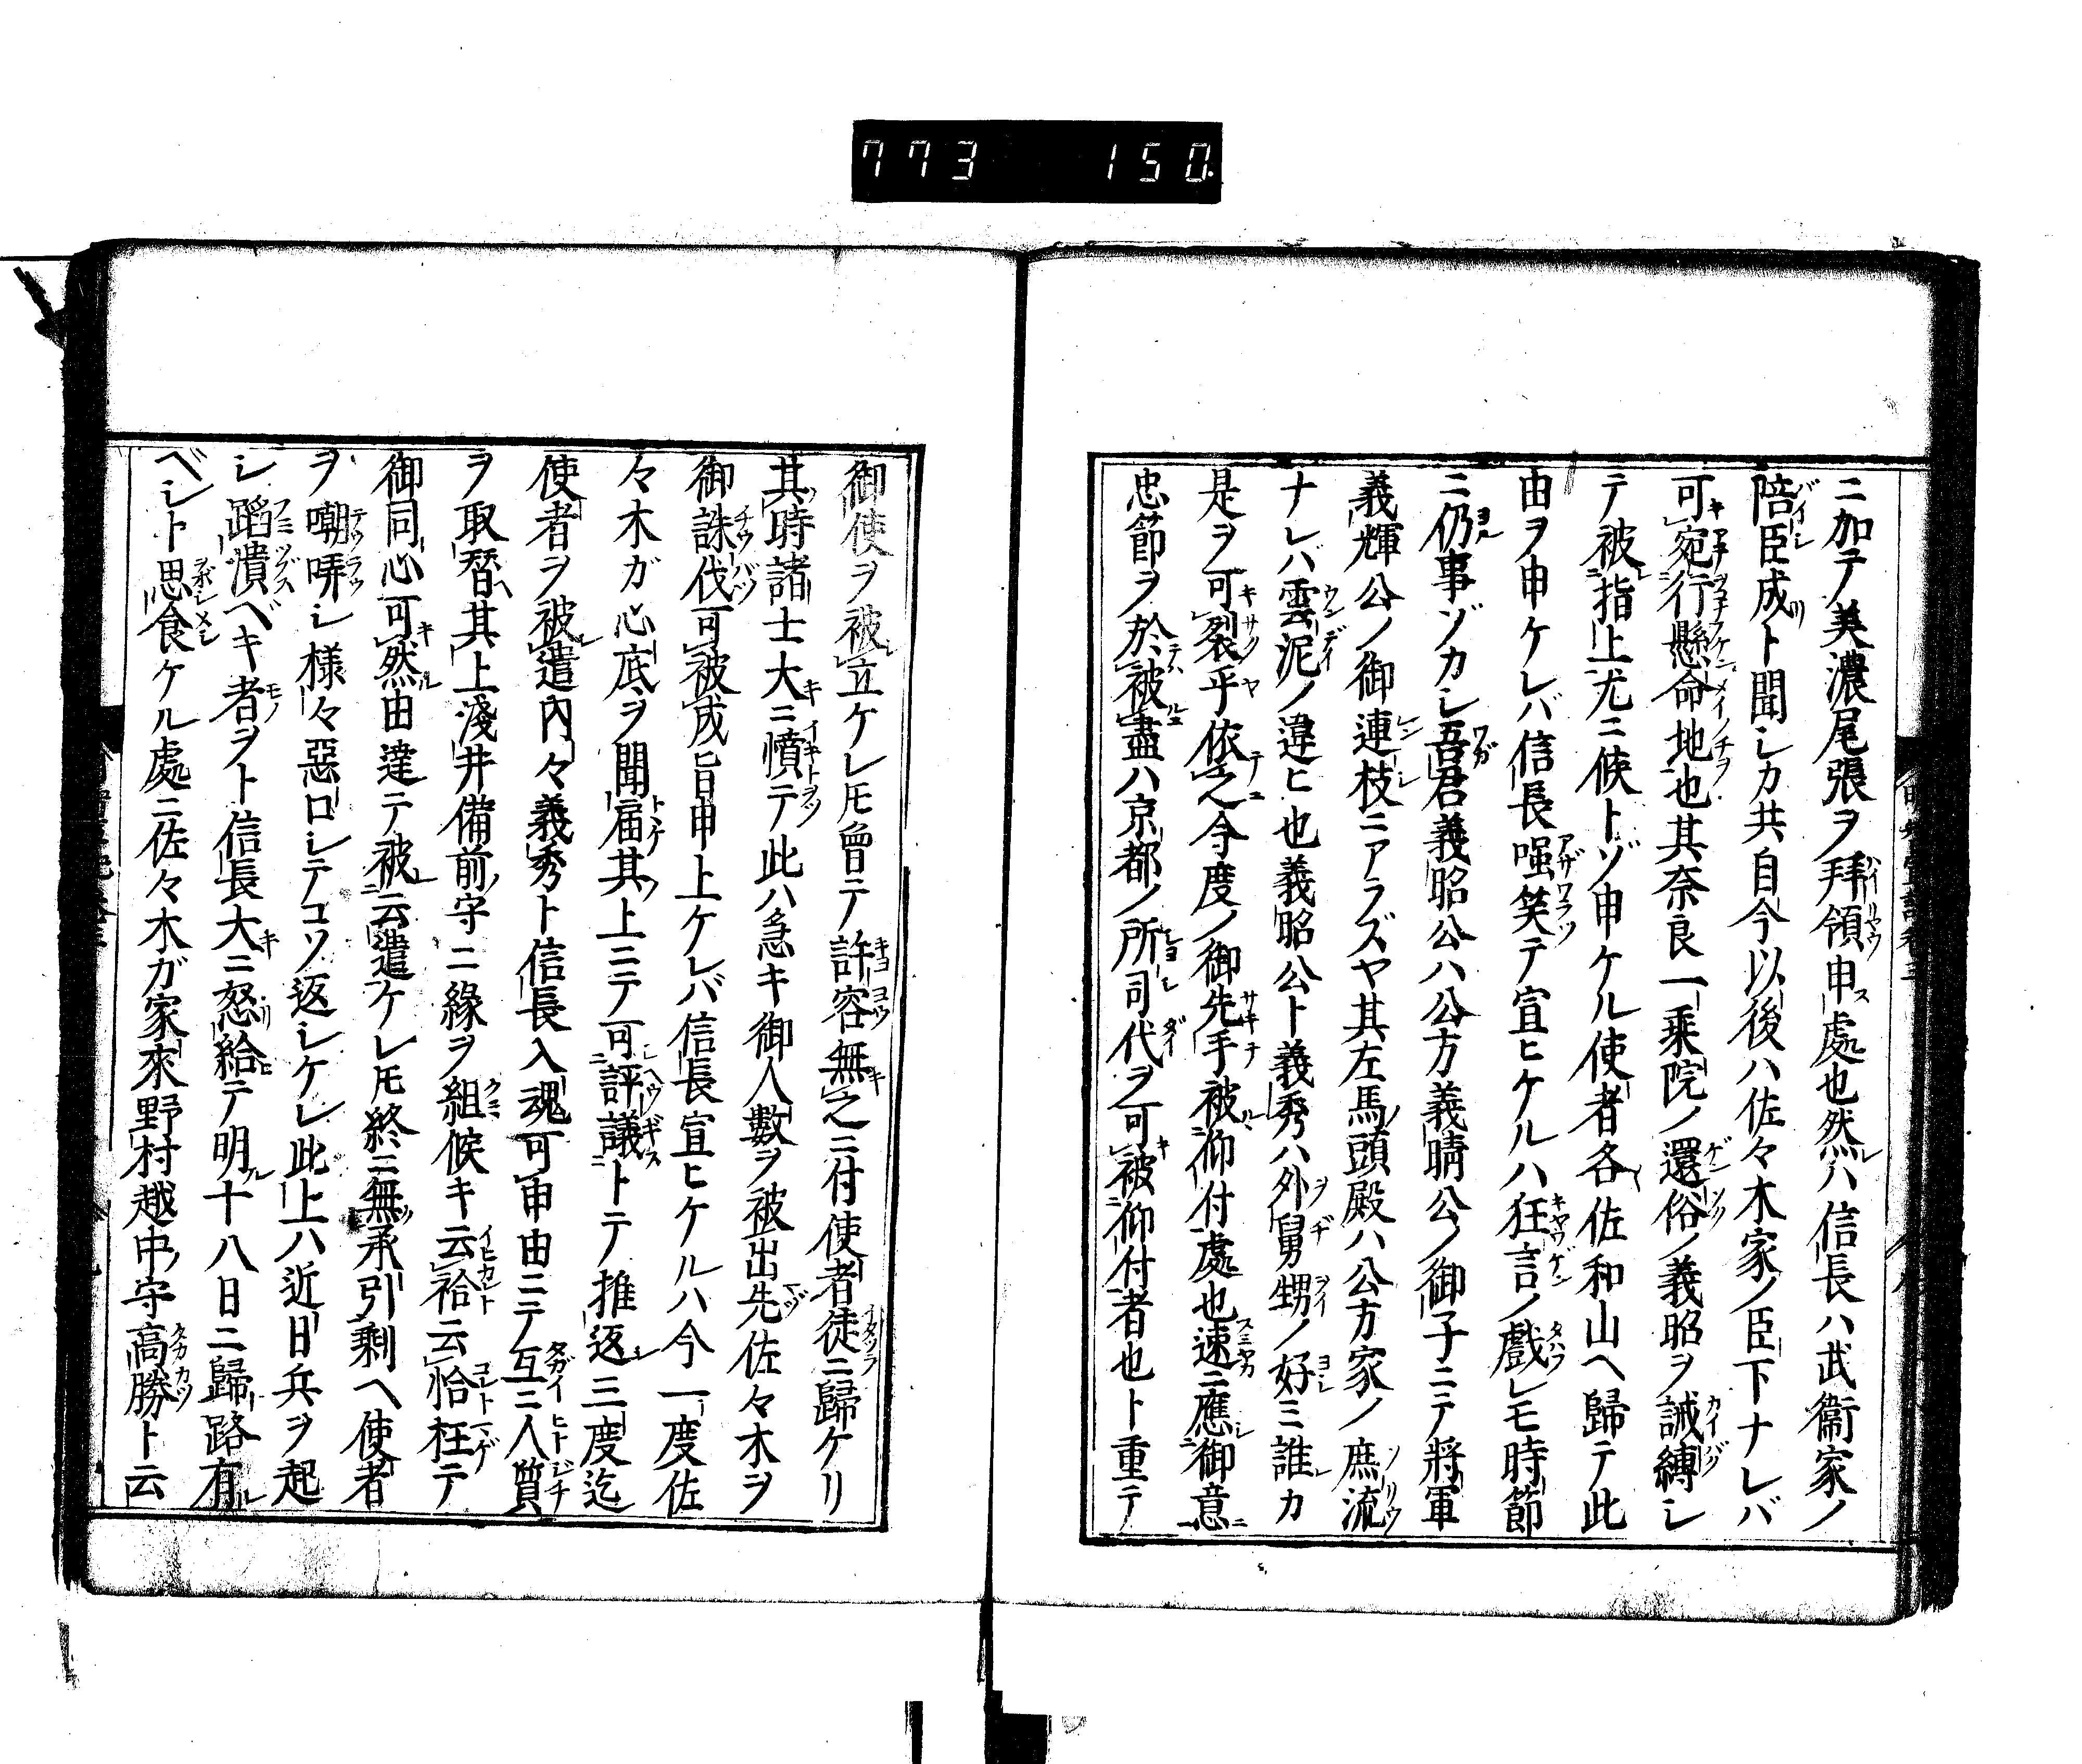 773 150.
ニ加テ美濃尾張ヲ拜領申處也然ハ信長ハ武衞家ノ
陪臣成ト聞シカ共自今以後ハ佐々木家ノ臣下ナレバ
可宛行懸命地也其奈良一乘院ノ還俗ノ義昭ヲ誡縛シ
テ被指上尤ニ候トゾ申ケル使者各佐和山ヘ歸テ此
由ヲ申ケレバ信長嗤笑テ宣ヒケルハ狂言ノ戲レモ時節
ニ仍事ゾカシ吾君義昭公ハ公方義晴公ノ御子ニテ將軍
義輝公ノ御連枝ニアラズヤ其左馬頭殿ハ公方家ノ庶流
ナレバ雲泥ノ違ヒ也義昭公ト義秀ハ外舅甥ノ好ミ誰カ
是ヲ可裂乎依之今度ノ御先手被仰付處也速ニ應御意
忠節ヲ於被盡ハ京都ノ所司代ヲ可被仰付者也ト重テ
御使ヲ被立ケレ𪜈曾テ許容無之ニ付使者徒ニ歸ケリ
其時諸士大ニ憤テ此ハ急キ御人數ヲ被出先佐々木ヲ
御誅伐可被成旨申上ケレバ信長宣ヒケルハ今一度佐
々木ガ心底ヲ聞屆其上ニテ可評議トテ推返三度迄
使者ヲ被遣內々義秀ト信長入魂可申由ニテ互ニ人質
ヲ取替其上淺井備前守ニ緣ヲ組候キ云袷云恰枉テ
御同心可然由達テ被云遣ケレ𪜈終ニ無承引剩ヘ使者
ヲ嘲哢シ樣々惡口シテコソ返シケレ此上ハ近日兵ヲ起
シ蹈潰ベキ者ヲト信長大ニ怒給テ明十八日ニ歸路有
ベシト思食ケル處ニ佐々木ガ家來野村越中守高勝ト云